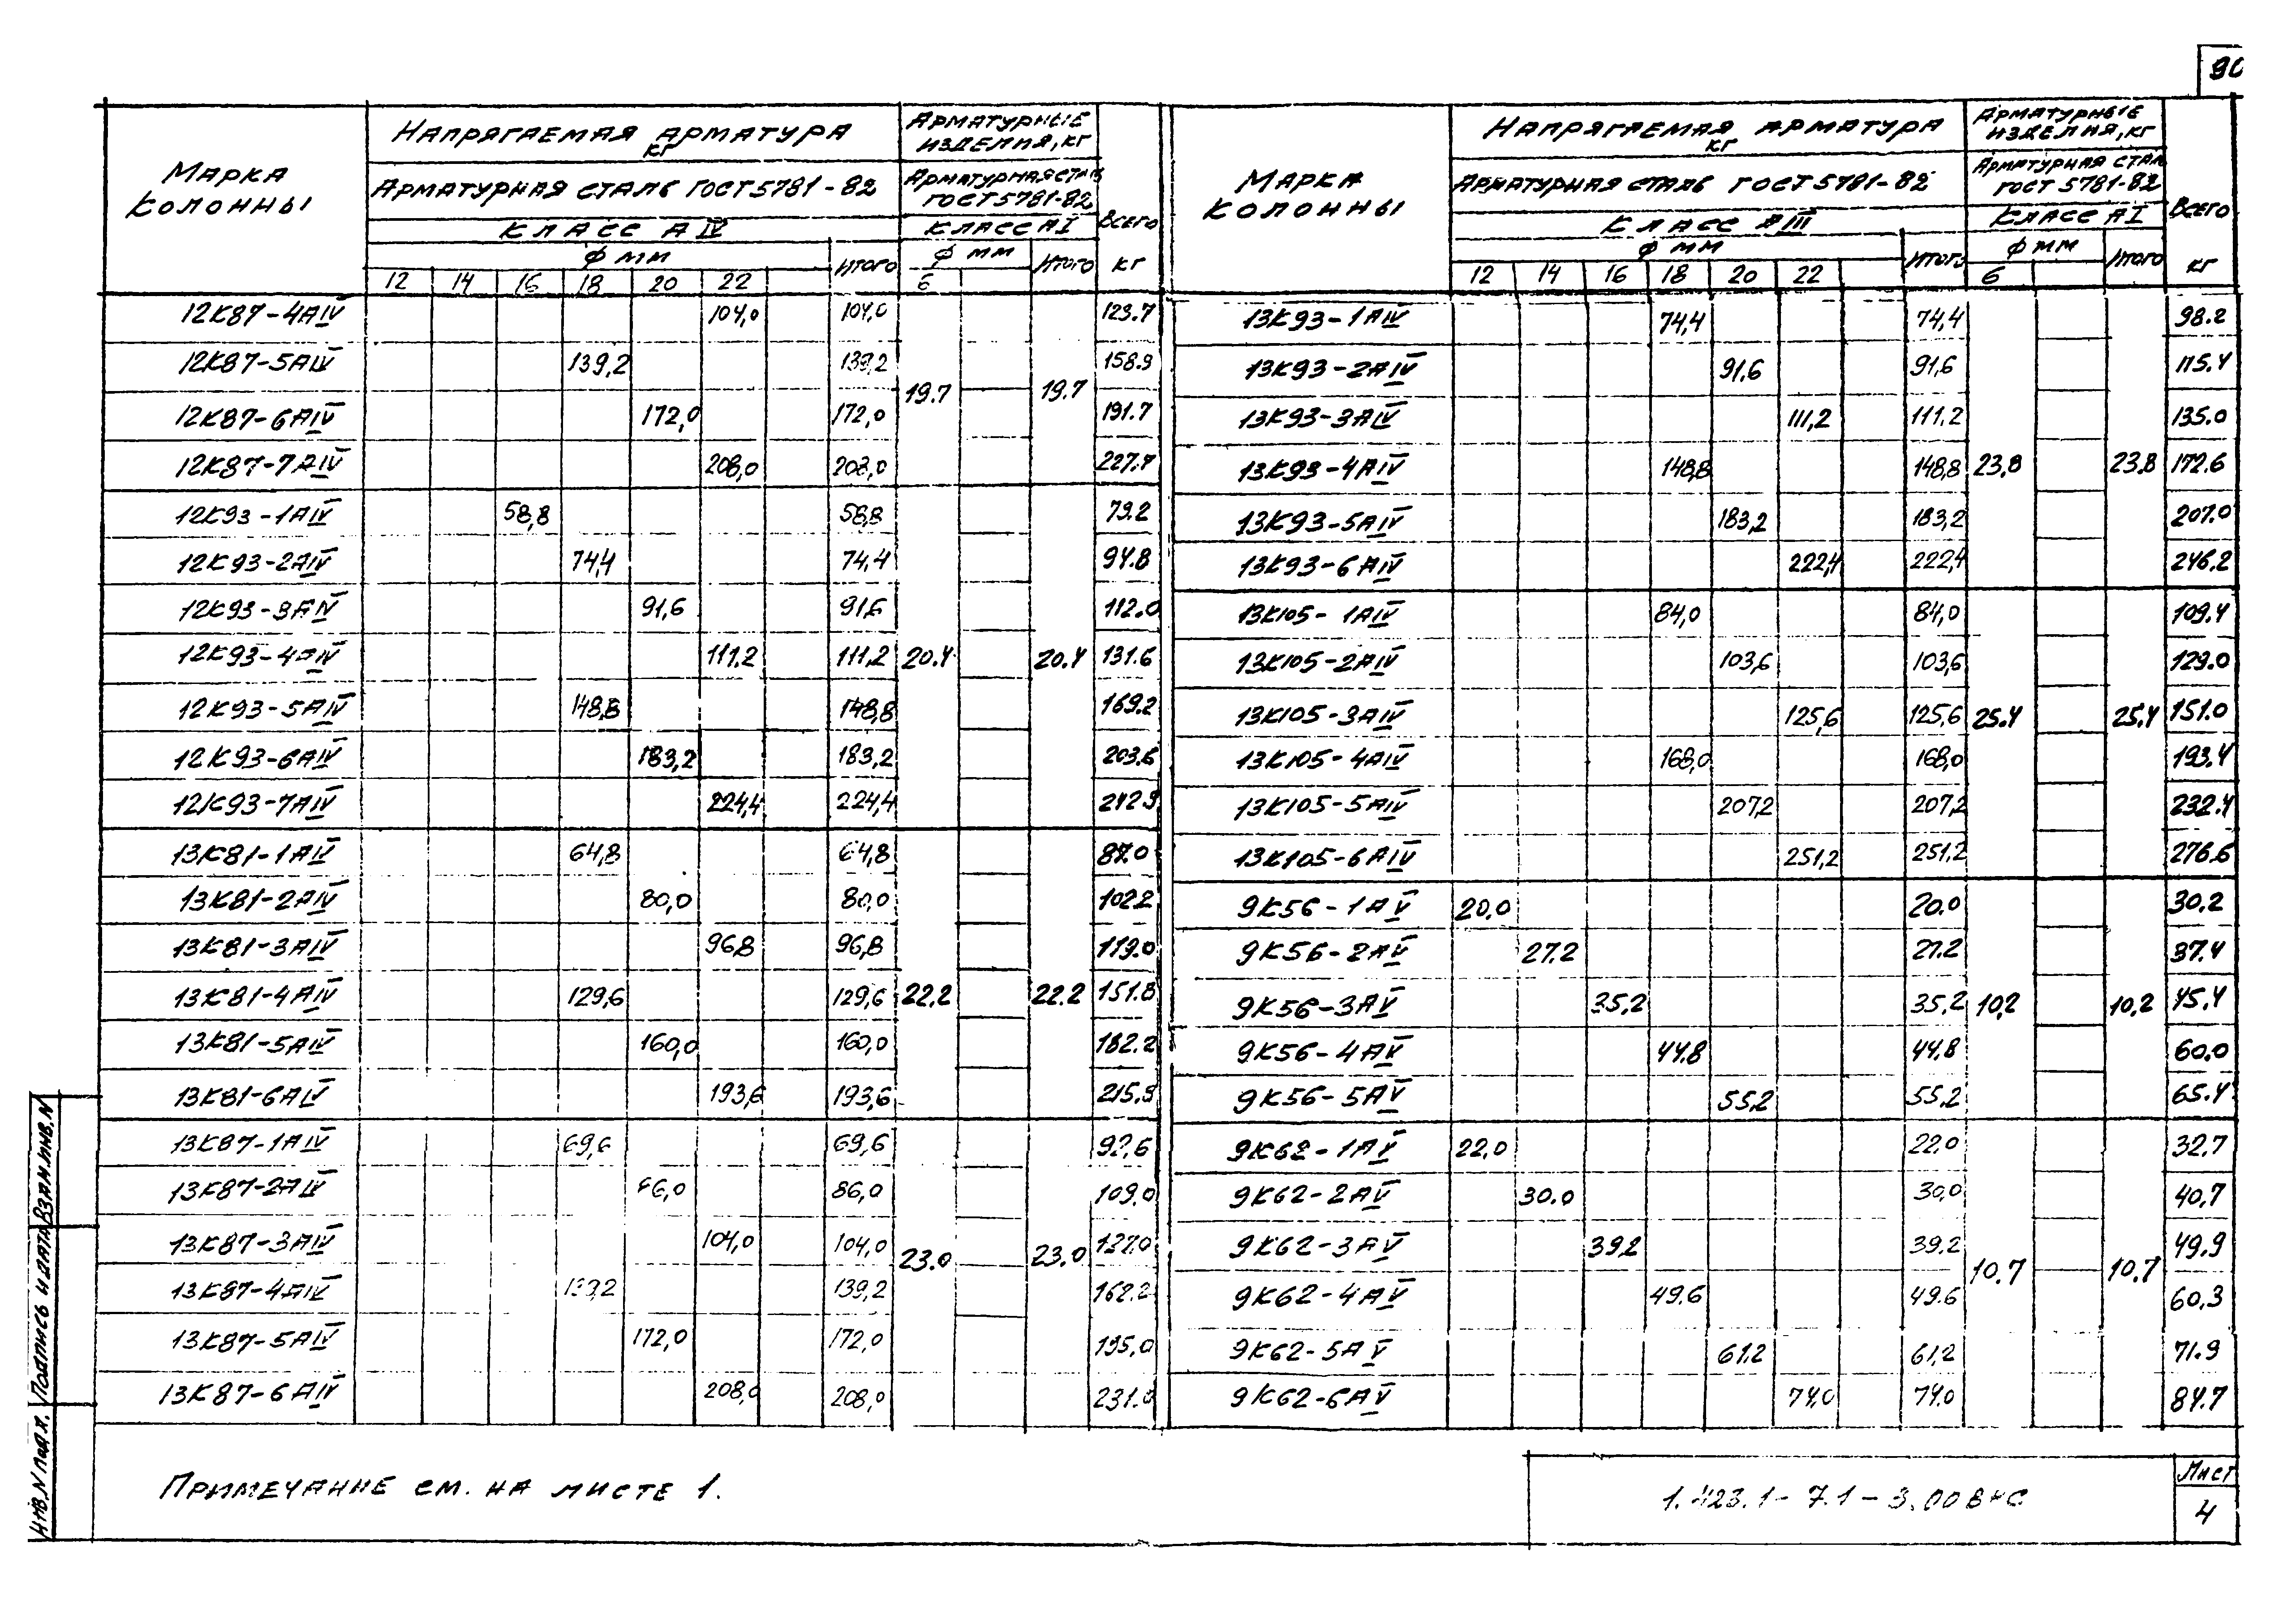 90
Марка колонны
Напрягаемая арматура кг
Арматурные изделия, кг
Всего кг
Арматурная сталь ГОСТ 5781-82
Арматурная сталь ГОСТ 5781-82
Класс А IV
Класс А I
ф мм
Итого
ф мм
Итого
12 14 16 18 20 22
6
12К87-4АIV 104,0 104,0 123.7
12К87-5АIV 139,2 139,2 158.9
19.7 19.7
12К87-6АIV 172,0 172,0 191.7
12К87-7АIV 208,0 208,0 227.7
12К93-1АIV 58,8 58,8 79.2
12К93-2АIV 74,4 74,4 94.8
12К93-3АIV 91,6 91,6 112.0
12К93-4АIV 111,2 111,2 20.4 20.4 131.6
12К93-5АIV 148,8 148,8 169.2
12К93-6АIV 183,2 183,2 203.6
12К93-7АIV 224,4 224,4
13К81-1АIV 64,8 64,8 87.0
13К81-2АIV 80,0 80,0 102.2
13К81-3АIV 96,8 96,8 119.0
13К81-4АIV 129,6 129,6 22.2 22.2 151.8
13К81-5АIV 160,0 160,0 182.2
13К81-6АIV 193,6 193,6
13К87-1АIV 69,6 69,6 92.6
13К87-2АIV 86,0 109.0
13К87-3АIV 104,0 104,0 23.0 23.0 127.0
13К87-4АIV 139,2 139,2 162.2
13К87-5АIV 172,0 172,0 195,0
13К87-6АIV 208,0 208,0 231.0
Марка колонны
Напрягаемая арматура кг
Арматурные изделия, кг
Всего кг
Арматурная сталь ГОСТ 5781-82
Арматурная стал ГОСТ 5781-82
Класс АIII
Класс АI
ф мм
Итого
ф мм
Итого
12 14 16 18 20 22
6
13К93-1АIV 74,4 74,4 98.2
13К93-2АIV 91.6 91,6 115.4
13К93-3АIV 111,2 111,2 135.0
13К93-4АIV 148,8 148,8 23,8 23,8 172.6
13К93-5АIV 183,2 183,2 207.0
13К93-6АIV 222,4 222,4 246.2
13К105-1АIV 84,0 84,0 109.4
13К105-2АIV 103,6 103,6 129.0
13К105-3АIV 125,6 125,6 25.4 25.4 151.0
13К105-4АIV 168,0 168,0 193.4
13К105-5АIV 207,2 207,2 232.4
13К105-6АIV 251,2 251,2 276.6
9К56-1АV 20,0 20.0 30.2
9К56-2АV 27.2 27.2 37.4
9К56-3АV 35,2 35,2 10,2 10,2 45.4
9К56-4АV 44.8 44,8 60.0
9К56-5АV 55,2 55,2 65.4
9К62-1АV 22,0 22,0 32.7
9К62-2АV 30.0 30,0 40,7
9К62-3АV 39,2 39,2 49.9
10.7 10.7
9К62-4АV 49.6 49.6 60.3
9К62-5АV 61.2 61,2 71.9
9К62-6АV 74,0 74.0 84.7
Примечание см. на листе 1.
1.423.1-7.1-3.00 ВМС
Лист
4
Инв.N подл. Подпись и дата Взам.инв.N